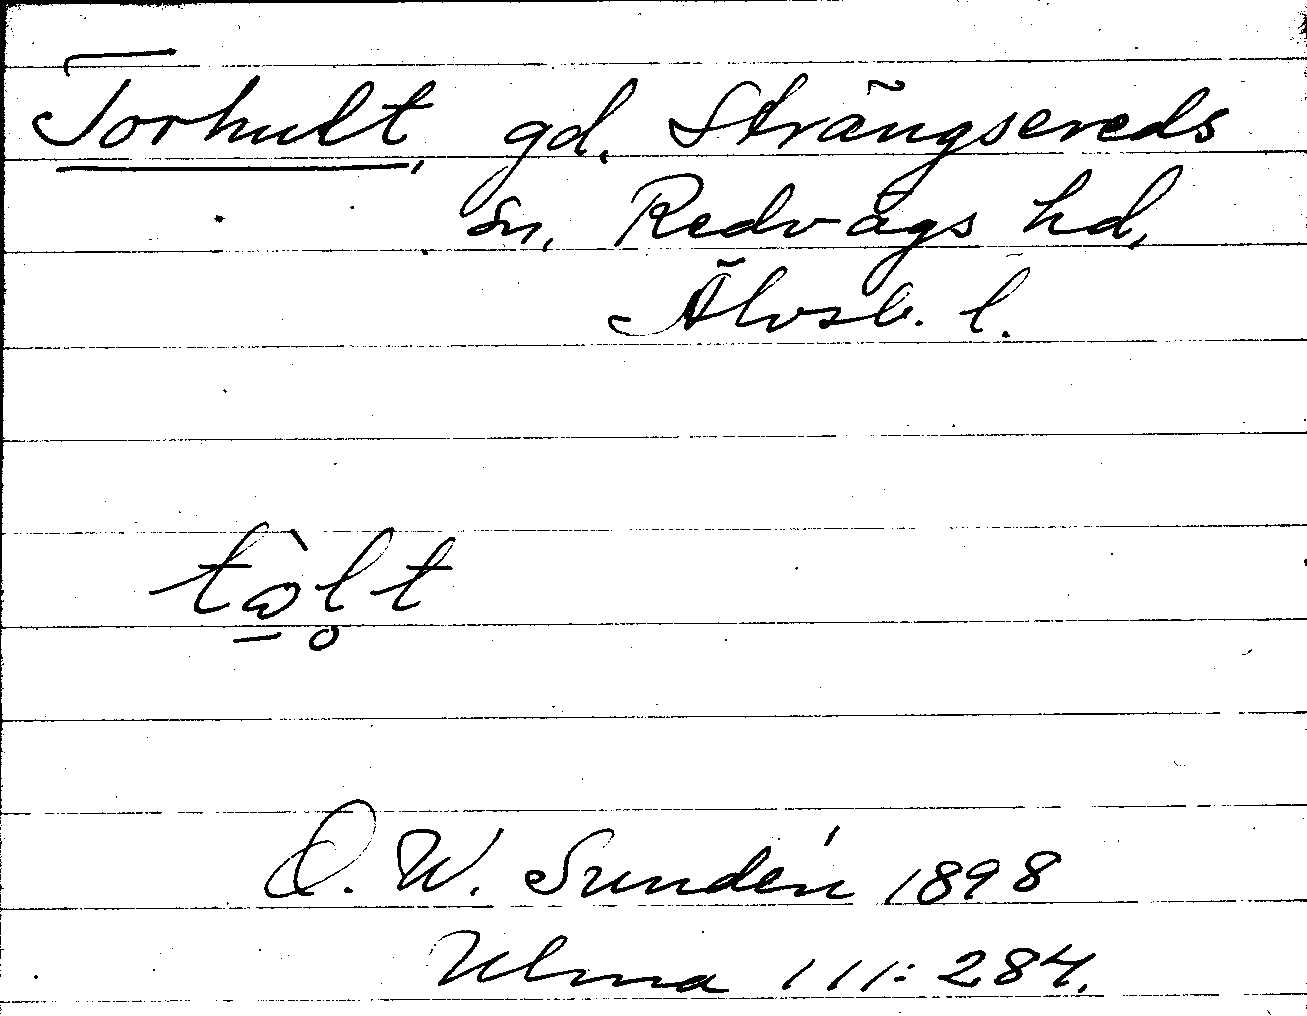 Torhult, gd. Strängsereds
sn, Redvägs hd,
Älvsb. l.
tὼ̱l̥t
D. W. Sundén 1898
Ulma 111:284.